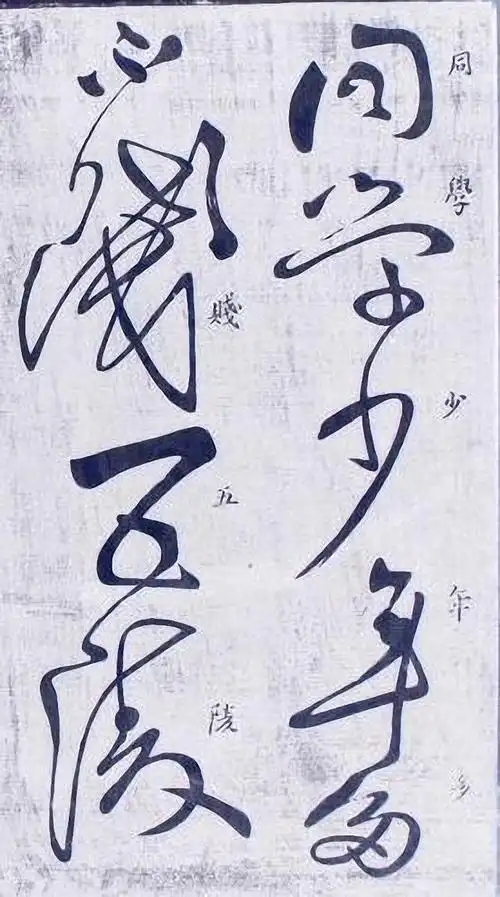 同學少年多
同學少年多
賤五陵
不賤五陵